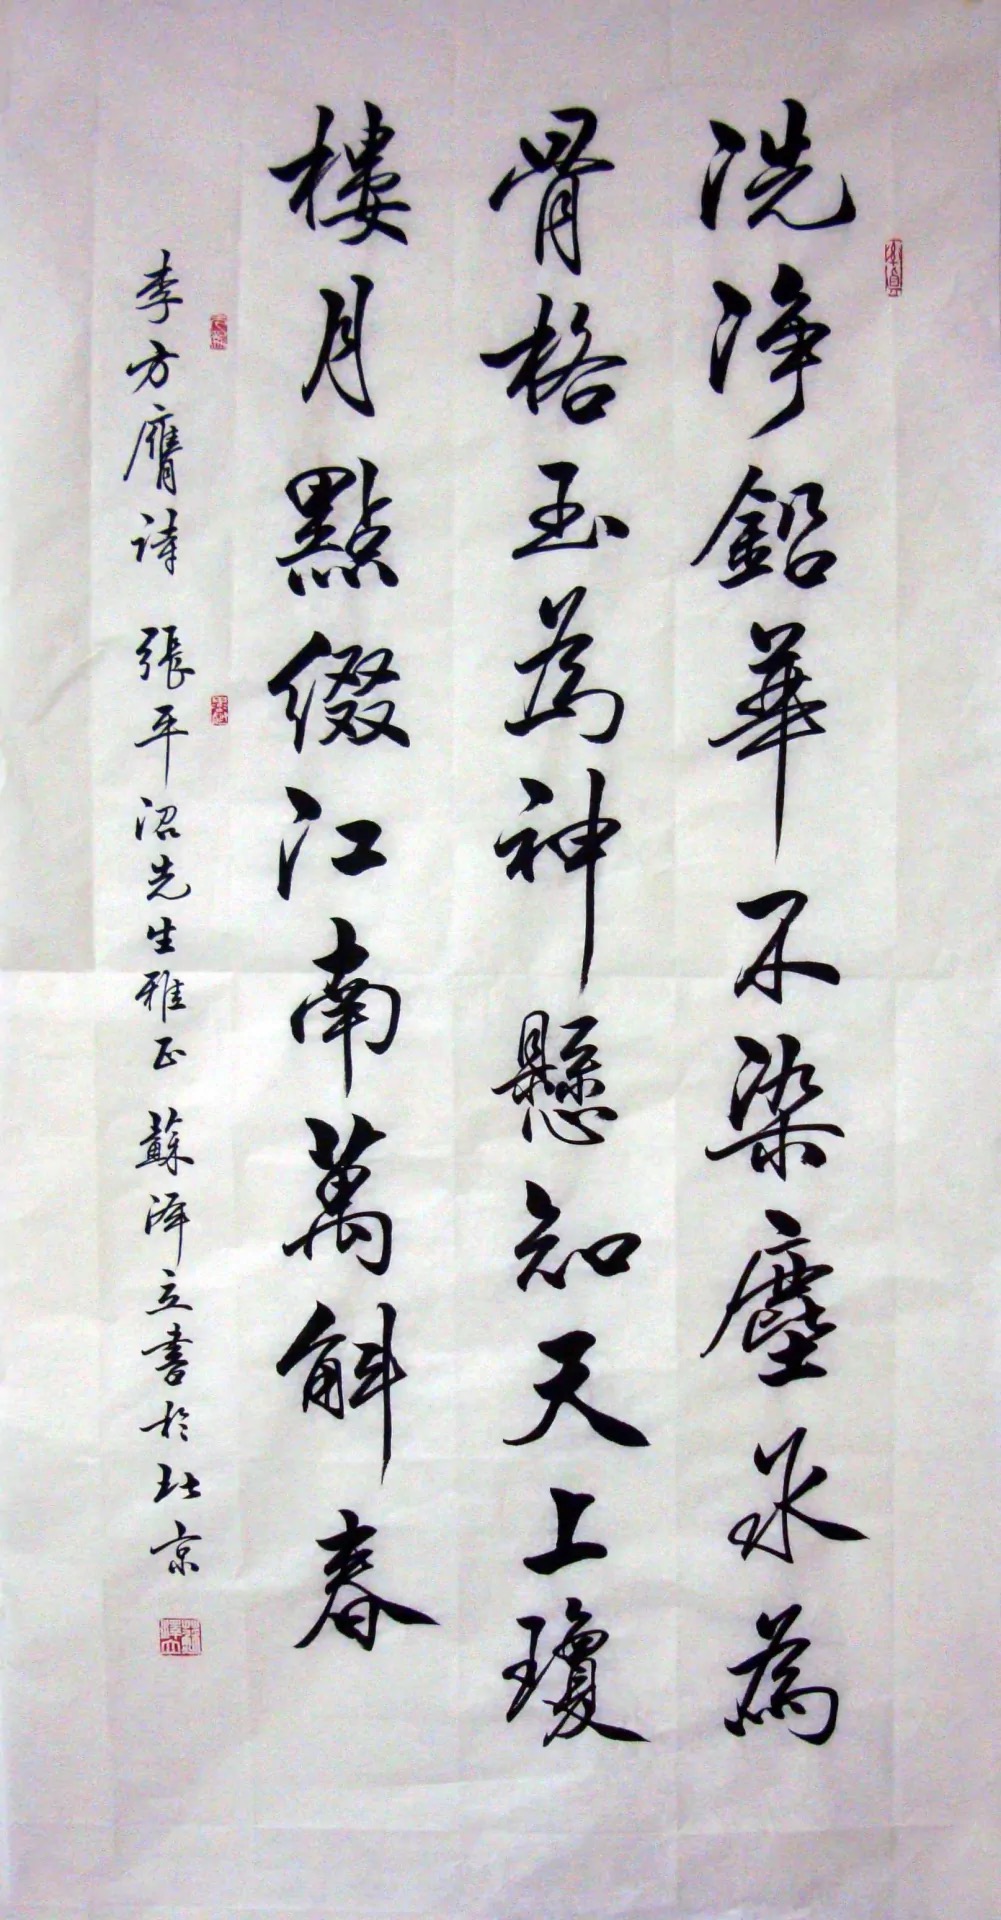 洗淨鉛華不染塵氷為
骨格玉為神懸知天上瓊
樓月點綴江南萬斛春
李方膺詩 張平沼先生雅正 蘇澤立書於北京